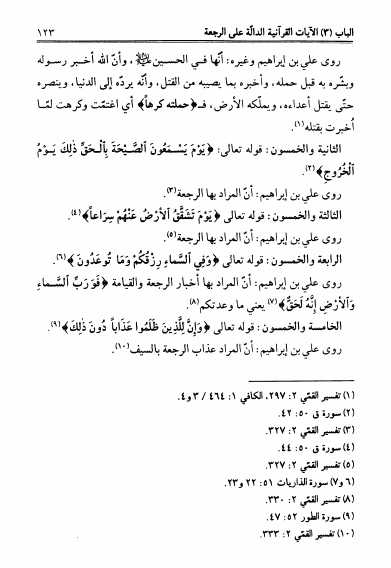 الباب (٣) الآيات القرآنية الدالّة على الرجعة ١٢٣
روى علي بن إبراهيم وغيره: أنّها في الحسين ﷺ، وأنّ الله أخبر رسوله
وبشّره به قبل حمله، وأخبره بما يصيبه من القتل، وأنّه يردّه إلى الدنيا، وينصره
حتّى يقتل أعداءه، ويملّكه الأرض، فـ﴿حملته كرهاً﴾ أي اغتمّت وكرهت لمّا
اُخبرت بقتله(١).
الثانية والخمسون: قوله تعالى: ﴿يَوْمَ يَسْمَعُونَ ٱلصَّيْحَةَ بِٱلْحَقِّ ذَلِكَ يَوْمُ
ٱلْخُرُوجِ﴾(٢).
روى علي بن إبراهيم: أنّ المراد بها الرجعة(٣).
الثالثة والخمسون: قوله تعالى ﴿يَوْمَ تَشَقَّقُ ٱلأَرْضُ عَنْهُمْ سِرَاعاً﴾(٤).
روى علي بن إبراهيم: أنّ المراد بها الرجعة(٥).
الرابعة والخمسون: قوله تعالى ﴿وَفِي ٱلسَّمَاءِ رِزْقُكُمْ وَمَا تُوعَدُونَ﴾(٦).
روى علي بن إبراهيم: أنّ المراد بها أخبار الرجعة والقيامة ﴿فَوَرَبِّ ٱلسَّمَاءِ
وَٱلأَرْضِ إِنَّهُ لَحَقٌّ﴾(٧) يعني ما وعدتكم(٨).
الخامسة والخمسون: قوله تعالى ﴿وَإِنَّ لِلَّذِينَ ظَلَمُوا عَذَاباً دُونَ ذَلِكَ﴾(٩).
روى علي بن إبراهيم: أنّ المراد عذاب الرجعة بالسيف(١٠).
(١) تفسير القمّي ٢: ٢٩٧، الكافي ١: ٤٦٤ / ٣ و٤.
(٢) سورة ق ٥٠: ٤٢.
(٣) تفسير القمّي ٢: ٣٢٧.
(٤) سورة ق ٥٠: ٤٤.
(٥) تفسير القمّي ٢: ٣٢٧.
(٦ و٧) سورة الذاريات ٥١: ٢٢ و٢٣.
(٨) تفسير القمّي ٢: ٣٣٠.
(٩) سورة الطور ٥٢: ٤٧.
(١٠) تفسير القمّي ٢: ٣٣٣.